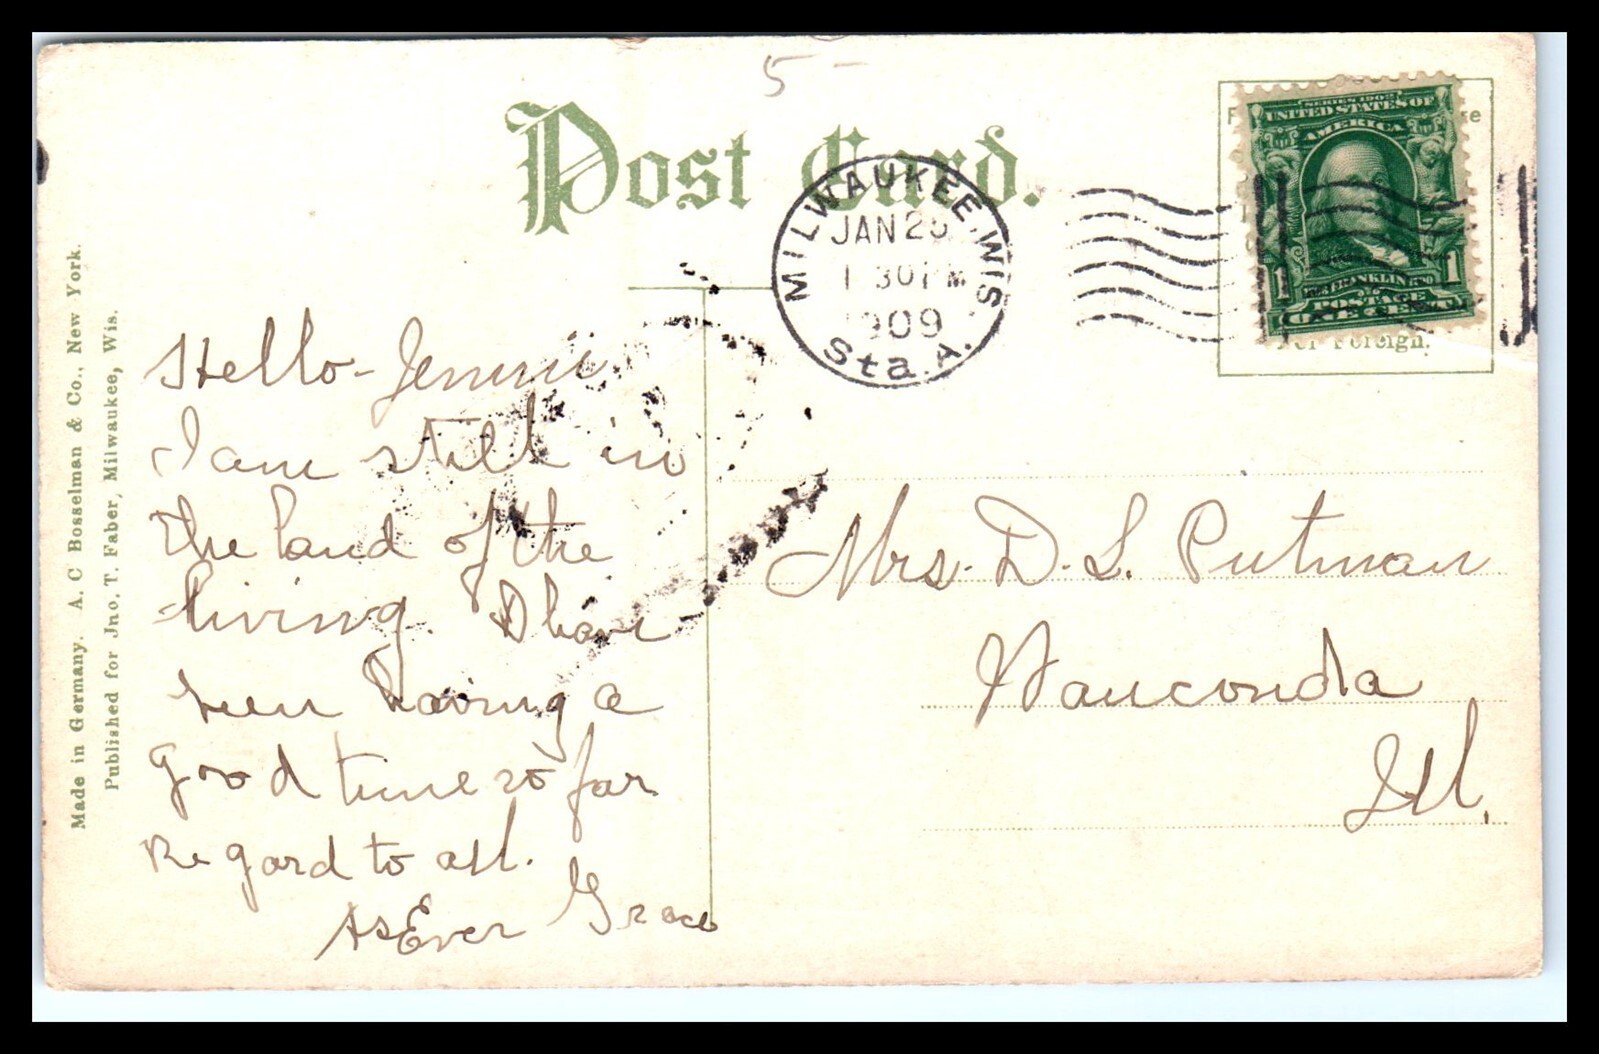 5 -
Post Card.
MILWAUKEE, WIS.
JAN 25
1 30 P M
1909
Sta. A.
SERIES 1902
UNITED STATES OF
AMERICA
FRANKLIN
1 1
POSTAGE
ONE CENT
For Foreign.
Made in Germany. A. C Bosselman & Co., New York.
Published for Jno. T. Faber, Milwaukee, Wis.
Hello - Jennie
I am still in
the land of the
living. I have
been having a
good time so far
Regard to all.
As Ever Grace
Mrs. D. L. Putman
Wauconda
Ill.